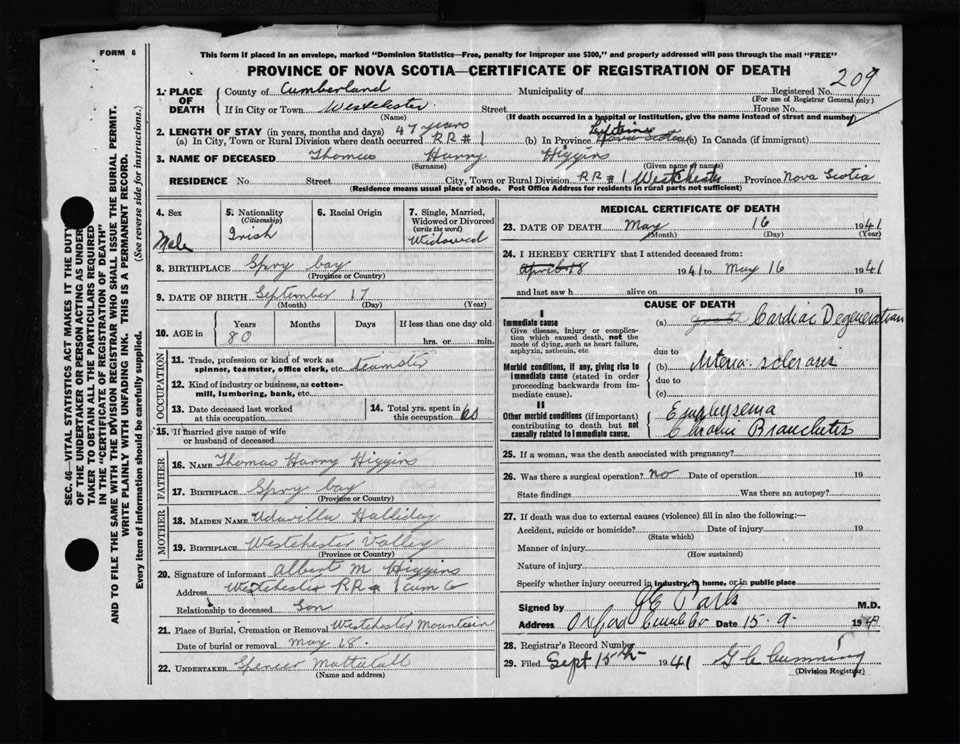 FORM 6
This form if placed in an envelope, marked "Dominion Statistics—Free, penalty for improper use $300," and properly addressed will pass through the mail "FREE"
PROVINCE OF NOVA SCOTIA—CERTIFICATE OF REGISTRATION OF DEATH
209
1. PLACE OF DEATH
County of Cumberland Municipality of Registered No.
(For use of Registrar General only)
If in City or Town Westchester Street House No.
(Name) (If death occurred in a hospital or institution, give the name instead of street and number)
2. LENGTH OF STAY (in years, months and days) 47 years
(a) In City, Town or Rural Division where death occurred RR # 1 (b) In Province Lifetime Nova Scotia (c) In Canada (if immigrant)
3. NAME OF DECEASED Thomas Harry Higgins
(Surname) (Given name or names)
RESIDENCE No. Street City, Town or Rural Division RR # 1 Westchester Province Nova Scotia
(Residence means usual place of abode. Post Office Address for residents in rural parts not sufficient)
4. Sex
Male
5. Nationality
(Citizenship)
Irish
6. Racial Origin
7. Single, Married, Widowed or Divorced
(write the word)
Widowed
8. BIRTHPLACE Spry bay
(Province or Country)
9. DATE OF BIRTH September 17
(Month) (Day) (Year)
10. AGE in
Years Months Days If less than one day old
80 hrs. or min.
OCCUPATION
11. Trade, profession or kind of work as spinner, teamster, office clerk, etc. teamster
12. Kind of industry or business, as cotton-mill, lumbering, bank, etc.
13. Date deceased last worked at this occupation
14. Total yrs. spent in this occupation 60
15. If married give name of wife or husband of deceased
FATHER
16. NAME Thomas Harry Higgins
17. BIRTHPLACE Spry bay
(Province or Country)
MOTHER
18. MAIDEN NAME Udavilla Halliday
19. BIRTHPLACE Westchester Valley
(Province or Country)
20. Signature of informant Albert M Higgins
Address Westchester RR # 1 Cum Co
Relationship to deceased Son
21. Place of Burial, Cremation or Removal Westchester Mountain
Date of burial or removal May 18.
22. UNDERTAKER Spencer Mattatall
(Name and address)
MEDICAL CERTIFICATE OF DEATH
23. DATE OF DEATH May 16 1941
(Month) (Day) (Year)
24. I HEREBY CERTIFY that I attended deceased from:
April 18 1941 to May 16 1941
and last saw h alive on 19
CAUSE OF DEATH
I
Immediate cause
Give disease, injury or complication which caused death, not the mode of dying, such as heart failure, asphyxia, asthenia, etc
(a) Cardiac Degeneration
due to
Morbid conditions, if any, giving rise to immediate cause (stated in order proceeding backwards from immediate cause).
(b) Arterio-sclerosis
due to
(c)
II
Other morbid conditions (if important) contributing to death but not causally related to immediate cause.
Emphysema
Chronic Bronchitis
25. If a woman, was the death associated with pregnancy?
26. Was there a surgical operation? No Date of operation 19
State findings Was there an autopsy?
27. If death was due to external causes (violence) fill in also the following:—
Accident, suicide or homicide? Date of injury 19
(State which)
Manner of injury
(How sustained)
Nature of injury
Specify whether injury occurred in industry, in home, or in public place
Signed by Park M.D.
Address Oxford Cumb Co Date 15-9- 194
28. Registrar's Record Number
29. Filed Sept 15th 1941 G C Cumming
(Division Registrar)
SEC. 46—VITAL STATISTICS ACT MAKES IT THE DUTY
OF THE UNDERTAKER OR PERSON ACTING AS UNDERTAKER TO OBTAIN ALL THE PARTICULARS REQUIRED
IN THE "CERTIFICATE OF REGISTRATION OF DEATH"
AND TO FILE THE SAME WITH THE DIVISION REGISTRAR WHO SHALL ISSUE THE BURIAL PERMIT.
WRITE PLAINLY WITH UNFADING INK. THIS IS A PERMANENT RECORD.
Every item of information should be carefully supplied. (See reverse side for instructions.)